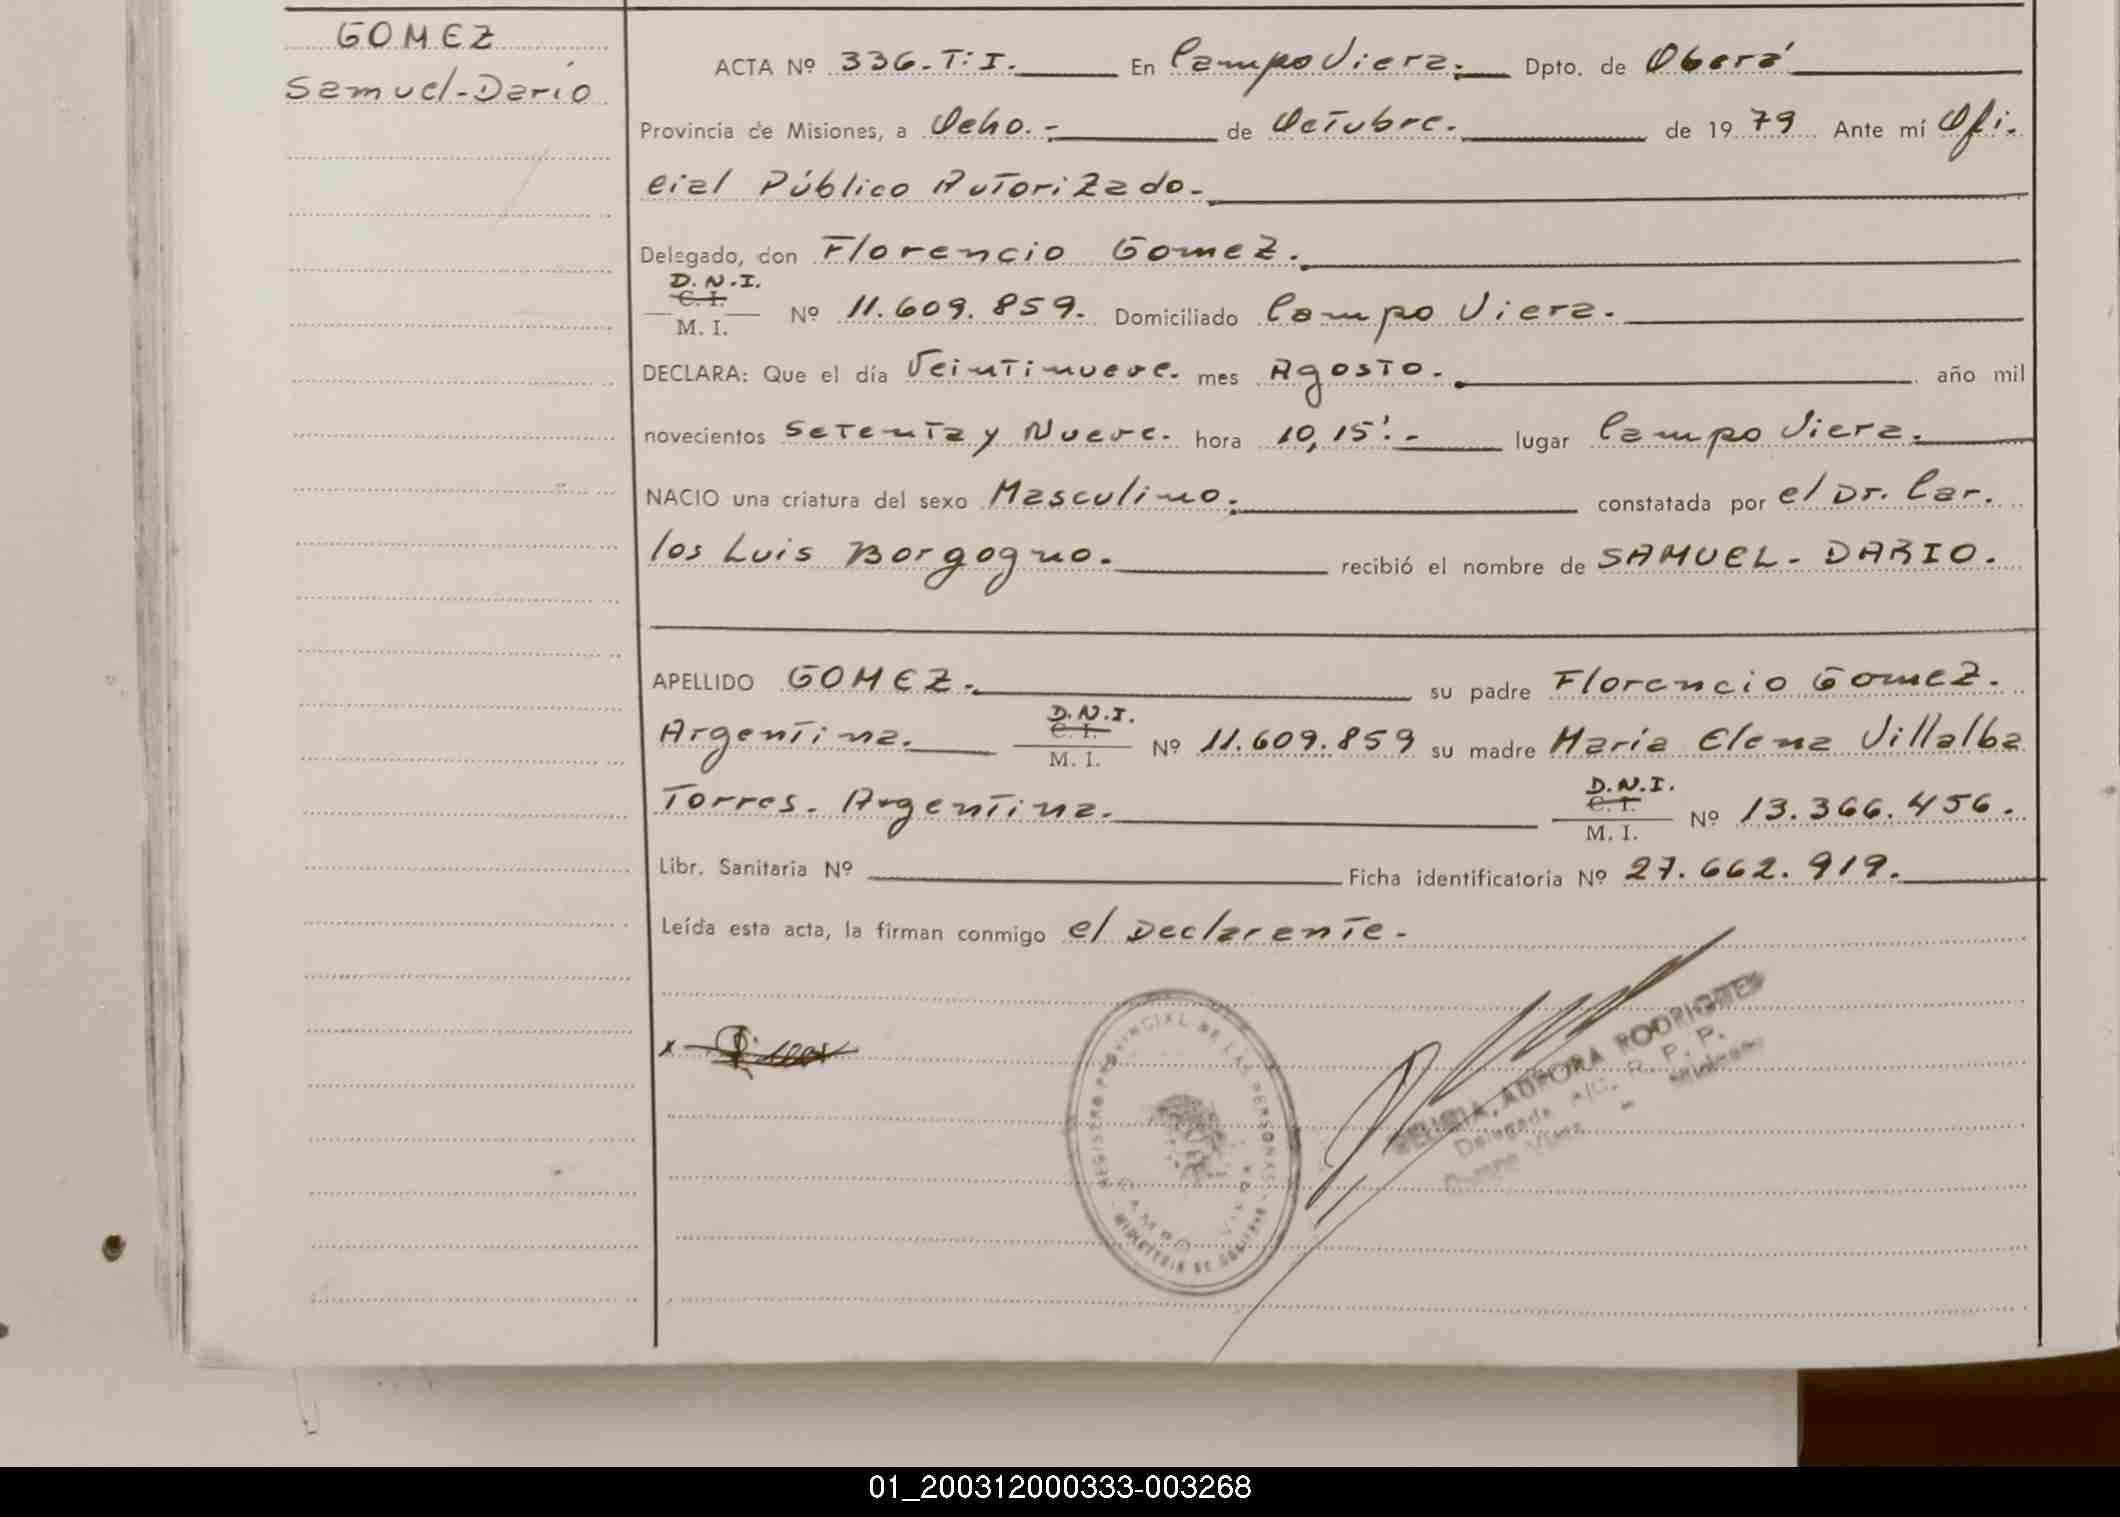 GOMEZ
Samuel-Darío
ACTA Nº 336.T:I. En Campo Viera. Dpto. de Oberá
Provincia de Misiones, a Ocho.- de Octubre. de 1979 Ante mí Ofi.
cial Público Autorizado.
Delegado, don Florencio Gomez.
D.N.I.
C. I.
M. I.
Nº 11.609.859. Domiciliado Campo Viera.
DECLARA: Que el día Veintinueve. mes Agosto. año mil
novecientos Setenta y Nueve. hora 10,15'.- lugar Campo Viera.
NACIO una criatura del sexo Masculino. constatada por el Dr. Car.
los Luis Borgogno. recibió el nombre de SAMUEL- DARIO.
APELLIDO GOMEZ. su padre Florencio Gomez.
D.N.I.
C. I.
Argentina. M. I. Nº 11.609.859 su madre María Elena Villalba
D.N.I.
C. I.
Torres. Argentina. M. I. Nº 13.366.456.
Libr. Sanitaria Nº Ficha identificatoria Nº 27.662.919.
Leída esta acta, la firman conmigo el Declarente.
x
REGISTRO PROVINCIAL DE LAS PERSONAS
CAMPO VIERA
MINISTERIO DE GOBIERNO
AURORA RODRIGUES
Delegada A/C. R. P. P.
Campo Viera - Misiones
01_200312000333-003268